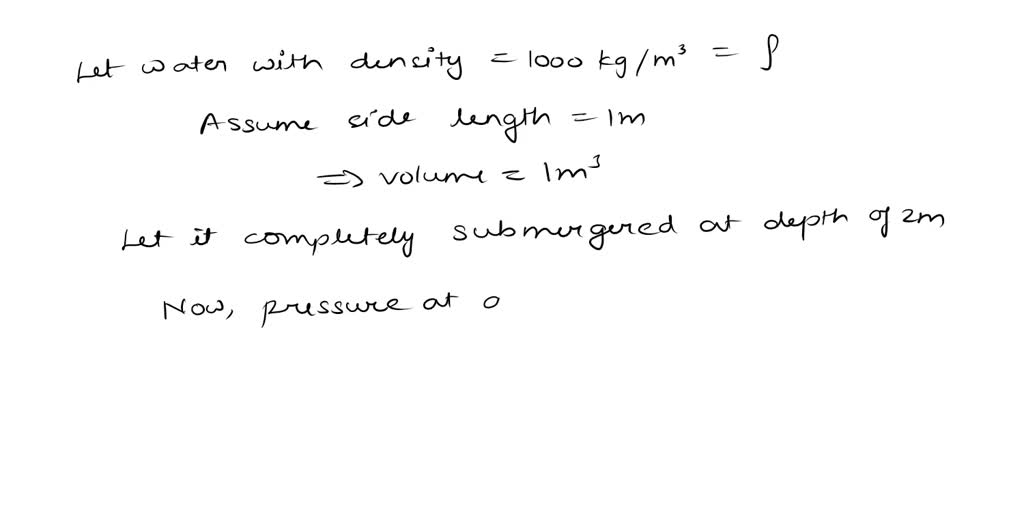 Let water with density = 1000 kg/m³ = ρ
Assume side length = 1m
⇒ volume = 1m³
Let it completely submergered at depth of 2m
Now, pressure at o